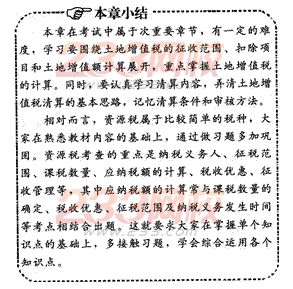 本章小结
本章在考试中属于次重要章节，有一定的难
度，学习要围绕土地增值税的征收范围、扣除项
目和土地增值额计算展开，重点掌握土地增值税
的计算。同时，要认真学习清算内容，弄清土地增
值税清算的基本思路，记忆清算条件和审核方法。
相对而言，资源税属于比较简单的税种，大
家在熟悉教材内容的基础上，通过做习题多加巩
固。资源税考查的重点是纳税义务人、征税范
围、课税数量、应纳税额的计算、税收优惠、征
收管理等，其中应纳税额的计算常与课税数量的
确定、税收优惠、征税范围及纳税义务发生时间
等考点相结合出题。这就要求大家在掌握单个知
识点的基础上，多接触习题，学会综合运用各个
知识点。
233网校
www.233.com